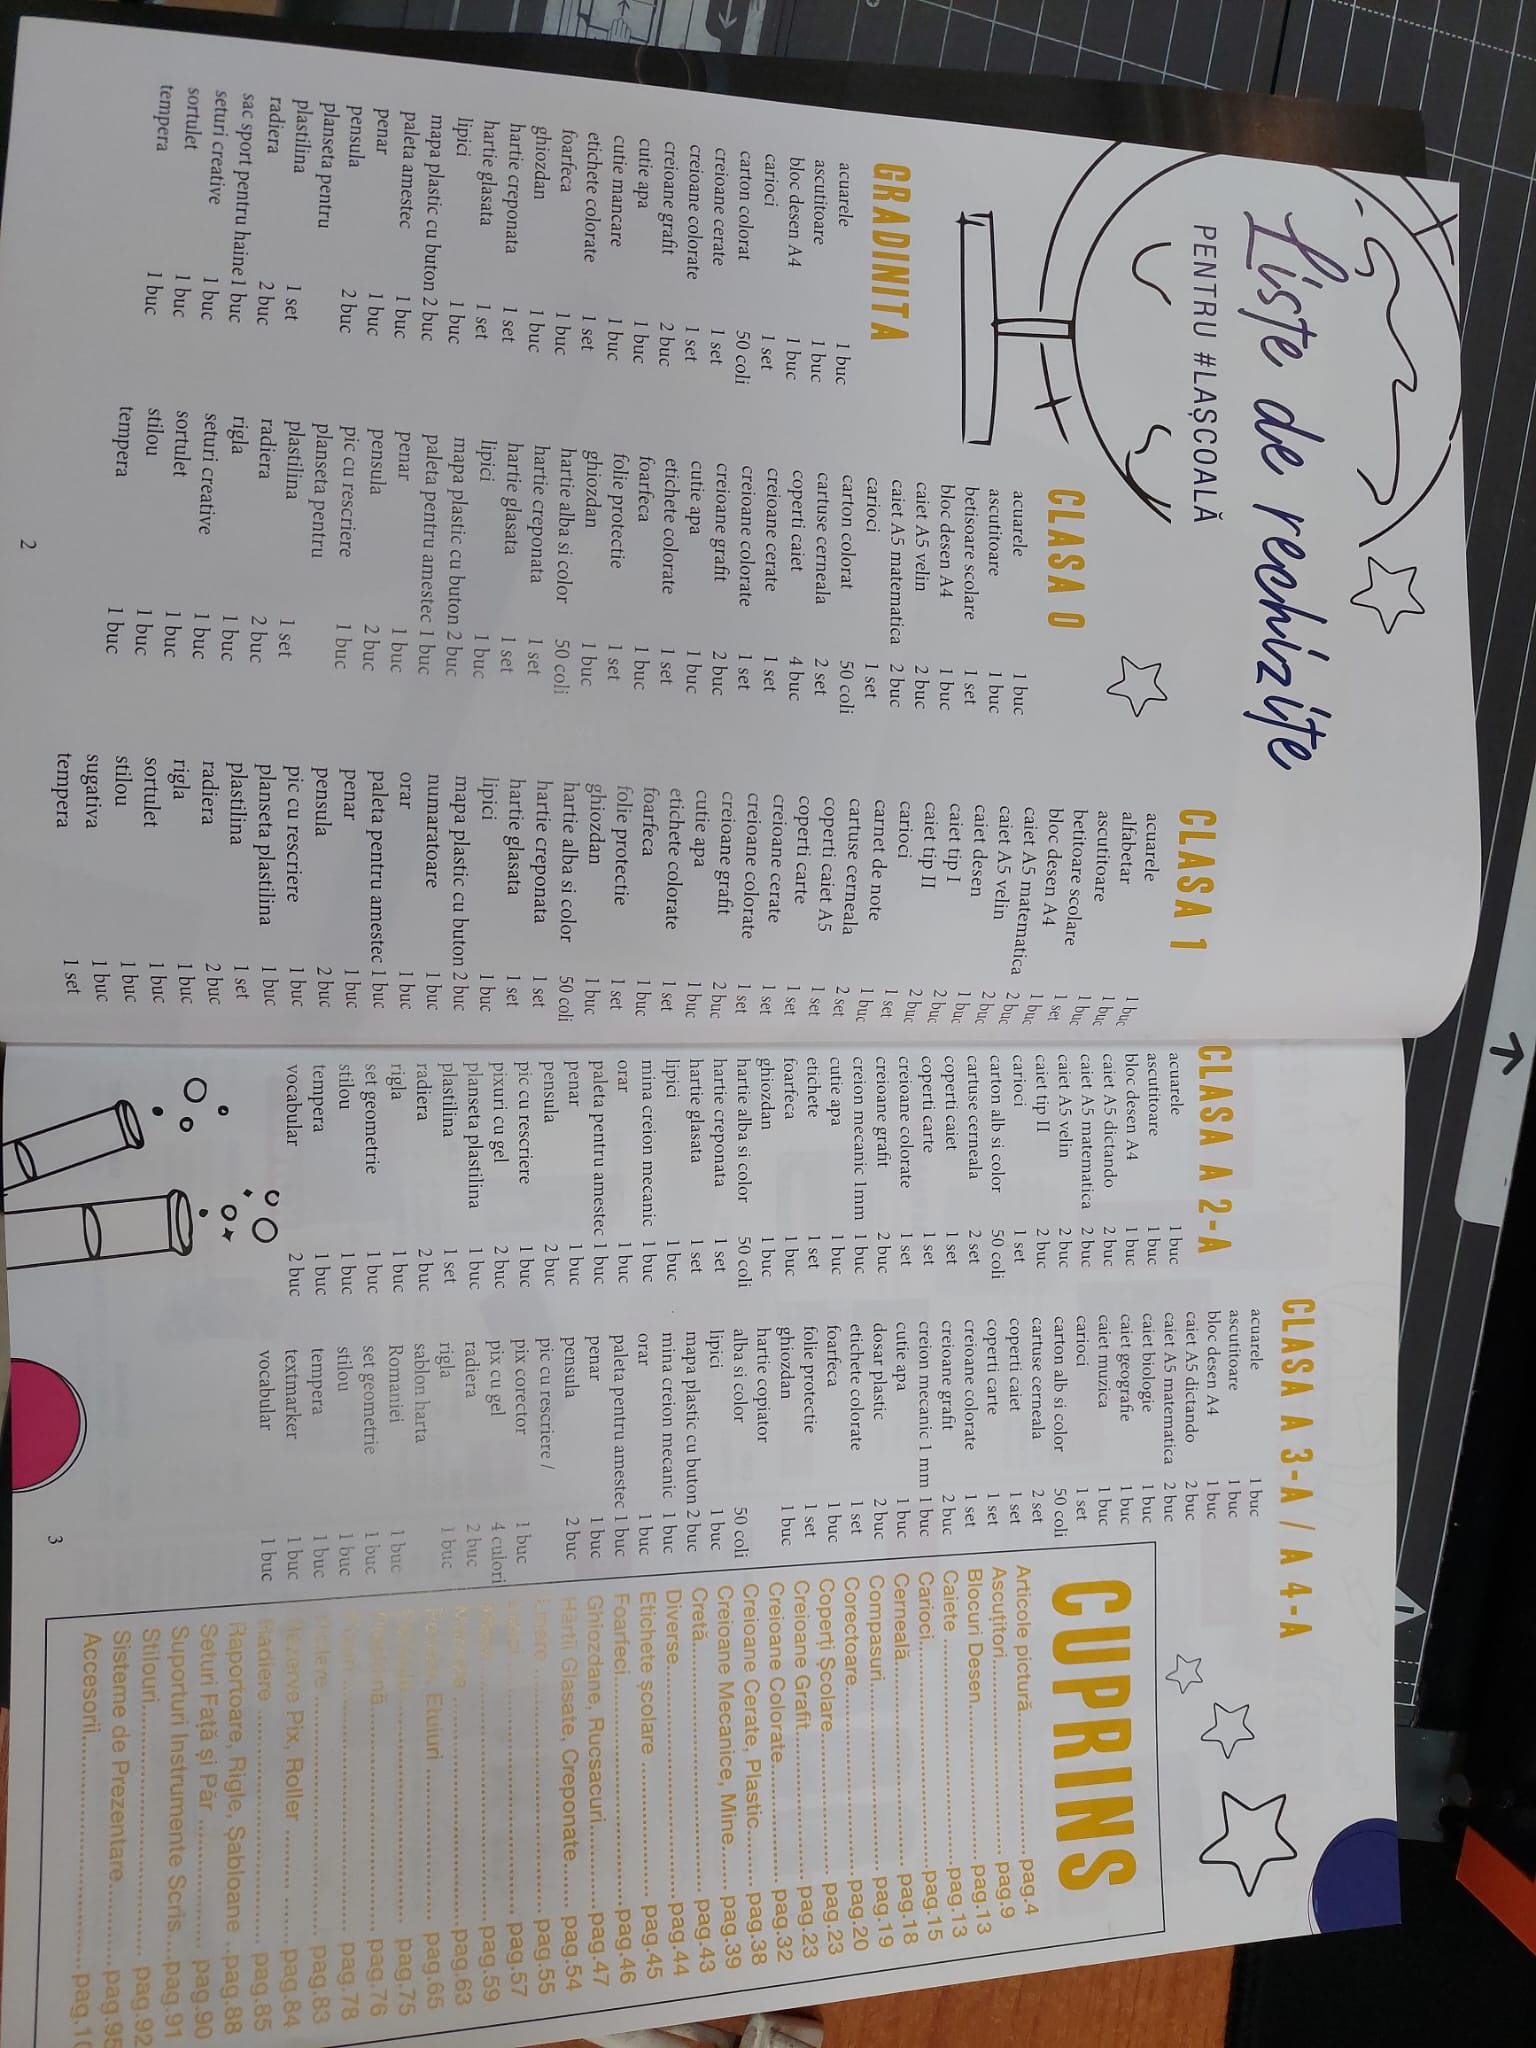 Liste de rechizite
PENTRU #LAȘCOALĂ
GRADINITA
acuarele 1 buc
ascutitoare 1 buc
bloc desen A4 1 buc
carioci 1 set
carton colorat 50 coli
creioane cerate 1 set
creioane colorate 1 set
creioane grafit 2 buc
cutie apa 1 buc
cutie mancare 1 buc
etichete colorate 1 set
foarfeca 1 buc
ghiozdan 1 buc
hartie creponata 1 set
hartie glasata 1 set
lipici 1 buc
mapa plastic cu buton 2 buc
paleta amestec 1 buc
penar 1 buc
pensula 2 buc
planseta pentru
plastilina 1 set
radiera 2 buc
sac sport pentru haine 1 buc
seturi creative 1 buc
sortulet 1 buc
tempera 1 buc
CLASA 0
acuarele 1 buc
ascutitoare 1 buc
betisoare scolare 1 set
bloc desen A4 1 buc
caiet A5 velin 2 buc
caiet A5 matematica 2 buc
carioci 1 set
carton colorat 50 coli
cartuse cerneala 2 set
coperti caiet 4 buc
creioane cerate 1 set
creioane colorate 1 set
creioane grafit 2 buc
cutie apa 1 buc
etichete colorate 1 set
foarfeca 1 buc
folie protectie 1 set
ghiozdan 1 buc
hartie alba si color 50 coli
hartie creponata 1 set
hartie glasata 1 set
lipici 1 buc
mapa plastic cu buton 2 buc
paleta pentru amestec 1 buc
penar 1 buc
pensula 2 buc
pic cu rescriere 1 buc
planseta pentru
plastilina 1 set
radiera 2 buc
rigla 1 buc
seturi creative 1 buc
sortulet 1 buc
stilou 1 buc
tempera 1 buc
CLASA 1
acuarele 1 buc
alfabetar 1 buc
ascutitoare 1 buc
betitoare scolare 1 set
bloc desen A4 1 buc
caiet A5 matematica 2 buc
caiet A5 velin 2 buc
caiet desen 1 buc
caiet tip I 2 buc
caiet tip II 2 buc
carioci 1 set
carnet de note 1 buc
cartuse cerneala 2 set
coperti caiet A5 1 set
coperti carte 1 set
creioane cerate 1 set
creioane colorate 1 set
creioane grafit 2 buc
cutie apa 1 buc
etichete colorate 1 set
foarfeca 1 buc
folie protectie 1 set
ghiozdan 1 buc
hartie alba si color 50 coli
hartie creponata 1 set
hartie glasata 1 set
lipici 1 buc
mapa plastic cu buton 2 buc
numaratoare 1 buc
orar 1 buc
paleta pentru amestec 1 buc
penar 1 buc
pensula 2 buc
pic cu rescriere 1 buc
planseta plastilina 1 buc
plastilina 1 set
radiera 2 buc
rigla 1 buc
sortulet 1 buc
stilou 1 buc
sugativa 1 buc
tempera 1 set
2
CLASA A 2-A
acuarele 1 buc
ascutitoare 1 buc
bloc desen A4 1 buc
caiet A5 dictando 2 buc
caiet A5 matematica 2 buc
caiet A5 velin 2 buc
caiet tip II 2 buc
carioci 1 set
carton alb si color 50 coli
cartuse cerneala 2 set
coperti caiet 1 set
coperti carte 1 set
creioane colorate 1 set
creioane grafit 2 buc
creion mecanic 1mm 1 buc
cutie apa 1 buc
etichete 1 set
foarfeca 1 buc
ghiozdan 1 buc
hartie alba si color 50 coli
hartie creponata 1 set
hartie glasata 1 set
lipici 1 buc
mina creion mecanic 1 buc
orar 1 buc
paleta pentru amestec 1 buc
penar 1 buc
pensula 2 buc
pic cu rescriere 1 buc
pixuri cu gel 2 buc
planseta plastilina 1 buc
plastilina 1 set
radiera 2 buc
rigla 1 buc
set geometrie 1 buc
stilou 1 buc
tempera 1 buc
vocabular 2 buc
CLASA A 3-A / A 4-A
acuarele 1 buc
ascutitoare 1 buc
bloc desen A4 1 buc
caiet A5 dictando 2 buc
caiet A5 matematica 2 buc
caiet biologie 1 buc
caiet geografie 1 buc
caiet muzica 1 buc
carioci 1 set
carton alb si color 50 coli
cartuse cerneala 2 set
coperti caiet 1 set
coperti carte 1 set
creioane colorate 1 set
creioane grafit 2 buc
creion mecanic 1 mm 1 buc
cutie apa 1 buc
dosar plastic 2 buc
etichete colorate 1 set
foarfeca 1 buc
folie protectie 1 set
ghiozdan 1 buc
hartie copiator
alba si color 50 coli
lipici 1 buc
mapa plastic cu buton 2 buc
mina creion mecanic 1 buc
orar 1 buc
paleta pentru amestec 1 buc
penar 1 buc
pensula 2 buc
pic cu rescriere /
pix corector 1 buc
pix cu gel 4 culori
radiera 2 buc
rigla 1 buc
sablon harta
Romaniei 1 buc
set geometrie 1 buc
stilou 1 buc
tempera 1 buc
textmarker 1 buc
vocabular 1 buc
CUPRINS
Articole pictură pag.4
Ascuțitori pag.9
Blocuri Desen pag.13
Caiete pag.13
Carioci pag.15
Cerneală pag.18
Compasuri pag.19
Corectoare pag.20
Coperți Școlare pag.23
Creioane Grafit pag.23
Creioane Colorate pag.32
Creioane Cerate, Plastic pag.38
Creioane Mecanice, Mine pag.39
Cretă pag.43
Diverse pag.44
Etichete școlare pag.45
Foarfeci pag.46
Ghiozdane, Rucsacuri pag.47
Hârtii Glasate, Creponate pag.54
pag.55
pag.57
pag.59
pag.63
Etuiuri pag.65
pag.75
pag.76
pag.78
pag.83
Rezerve Pix, Roller pag.84
Radiere pag.85
Raportoare, Rigle, Șabloane pag.88
Seturi Față și Păr pag.90
Suporturi Instrumente Scris pag.91
Stilouri pag.92
Sisteme de Prezentare pag.95
Accesorii
3